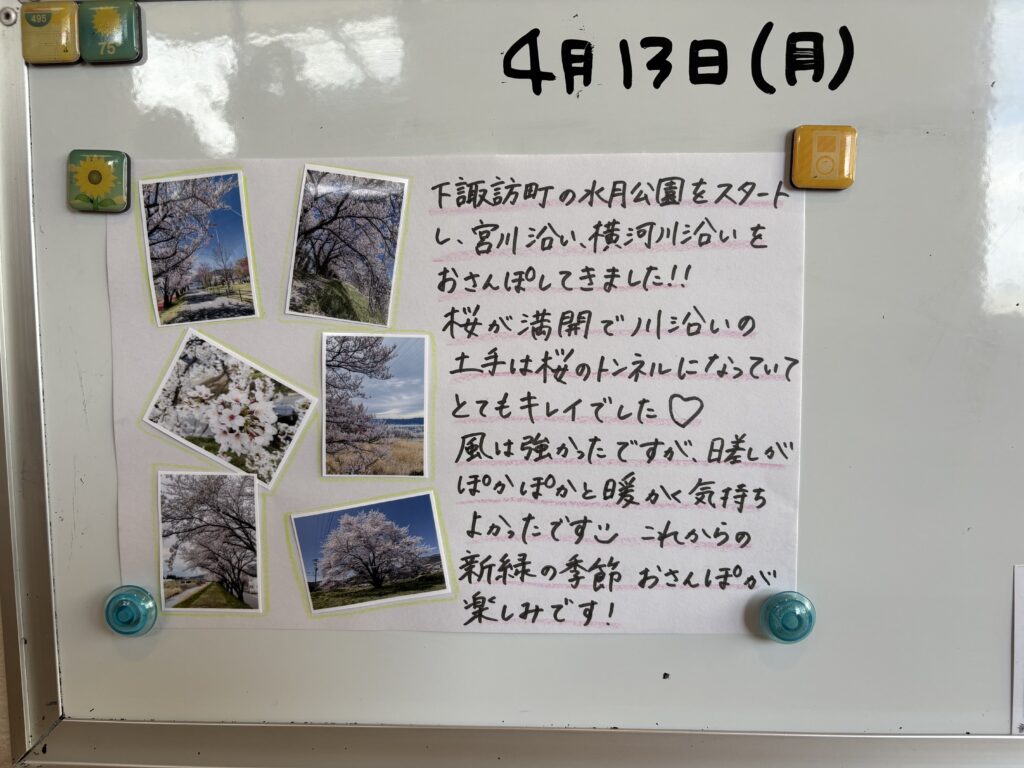 495
75
4月13日(月)
下諏訪町の水月公園をスタート
し、宮川沿い、横河川沿いを
おさんぽしてきました!!
桜が満開で川沿いの
土手は桜のトンネルになっていて
とてもキレイでした♡
風は強かったですが、日差しが
ぽかぽかと暖かく気持ち
よかったです☺ これからの
新緑の季節 おさんぽが
楽しみです!